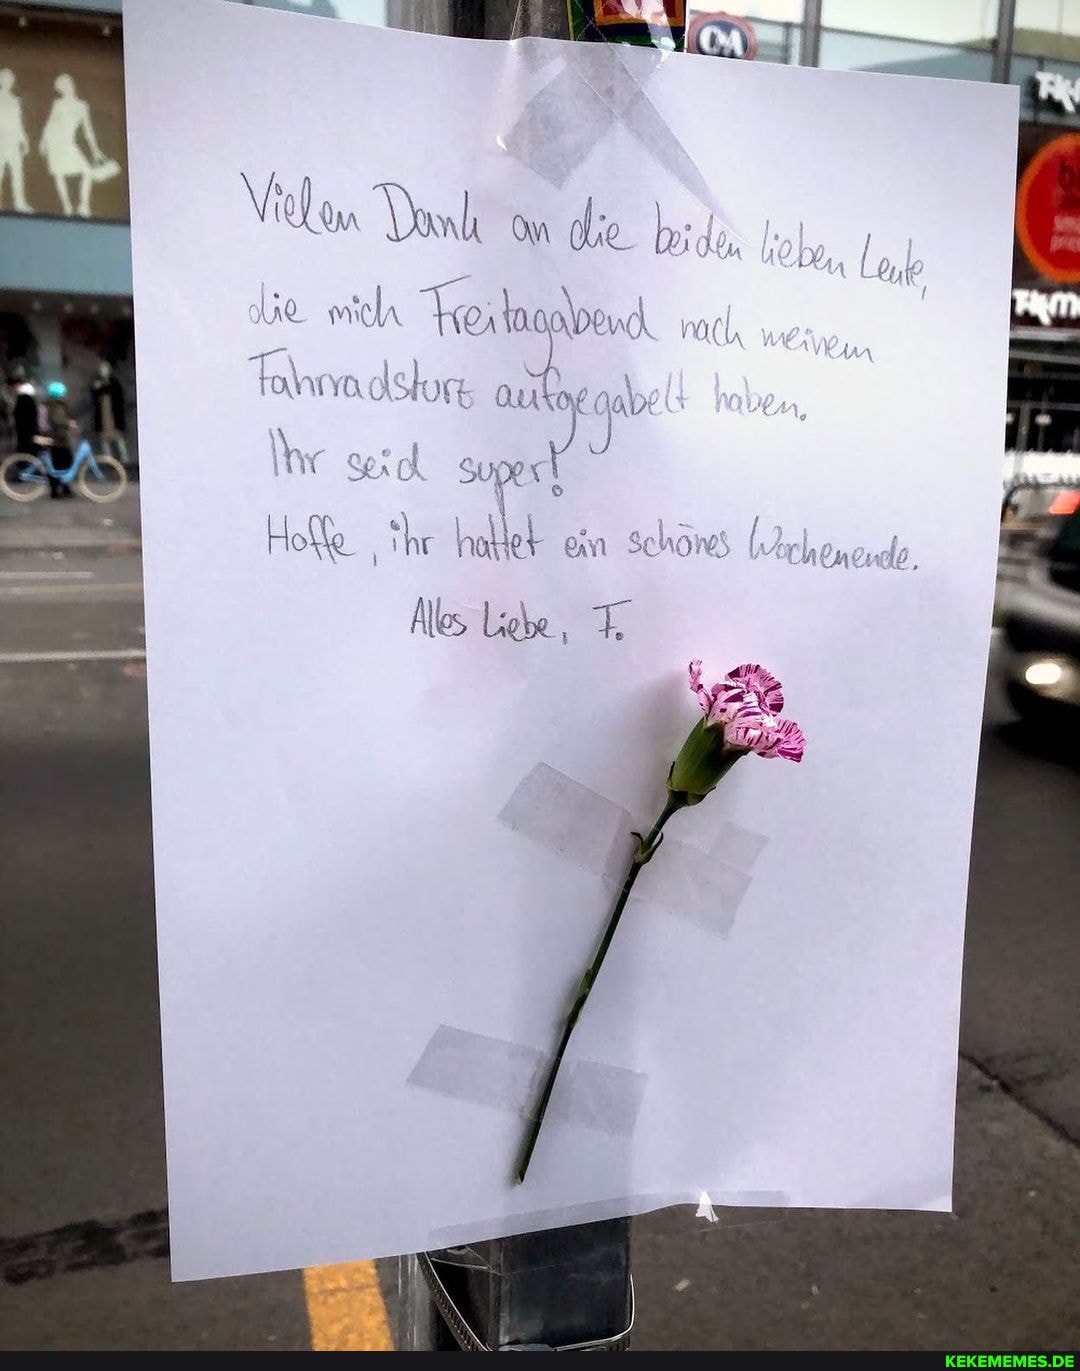 C&A
Vielen Dank an die beiden lieben Leute,
die mich Freitagabend nach meinem
Fahrradsturz aufgegabelt haben.
Ihr seid super!
Hoffe, ihr hattet ein schönes Wochenende.
Alles Liebe, F.
KEKEMEMES.DE